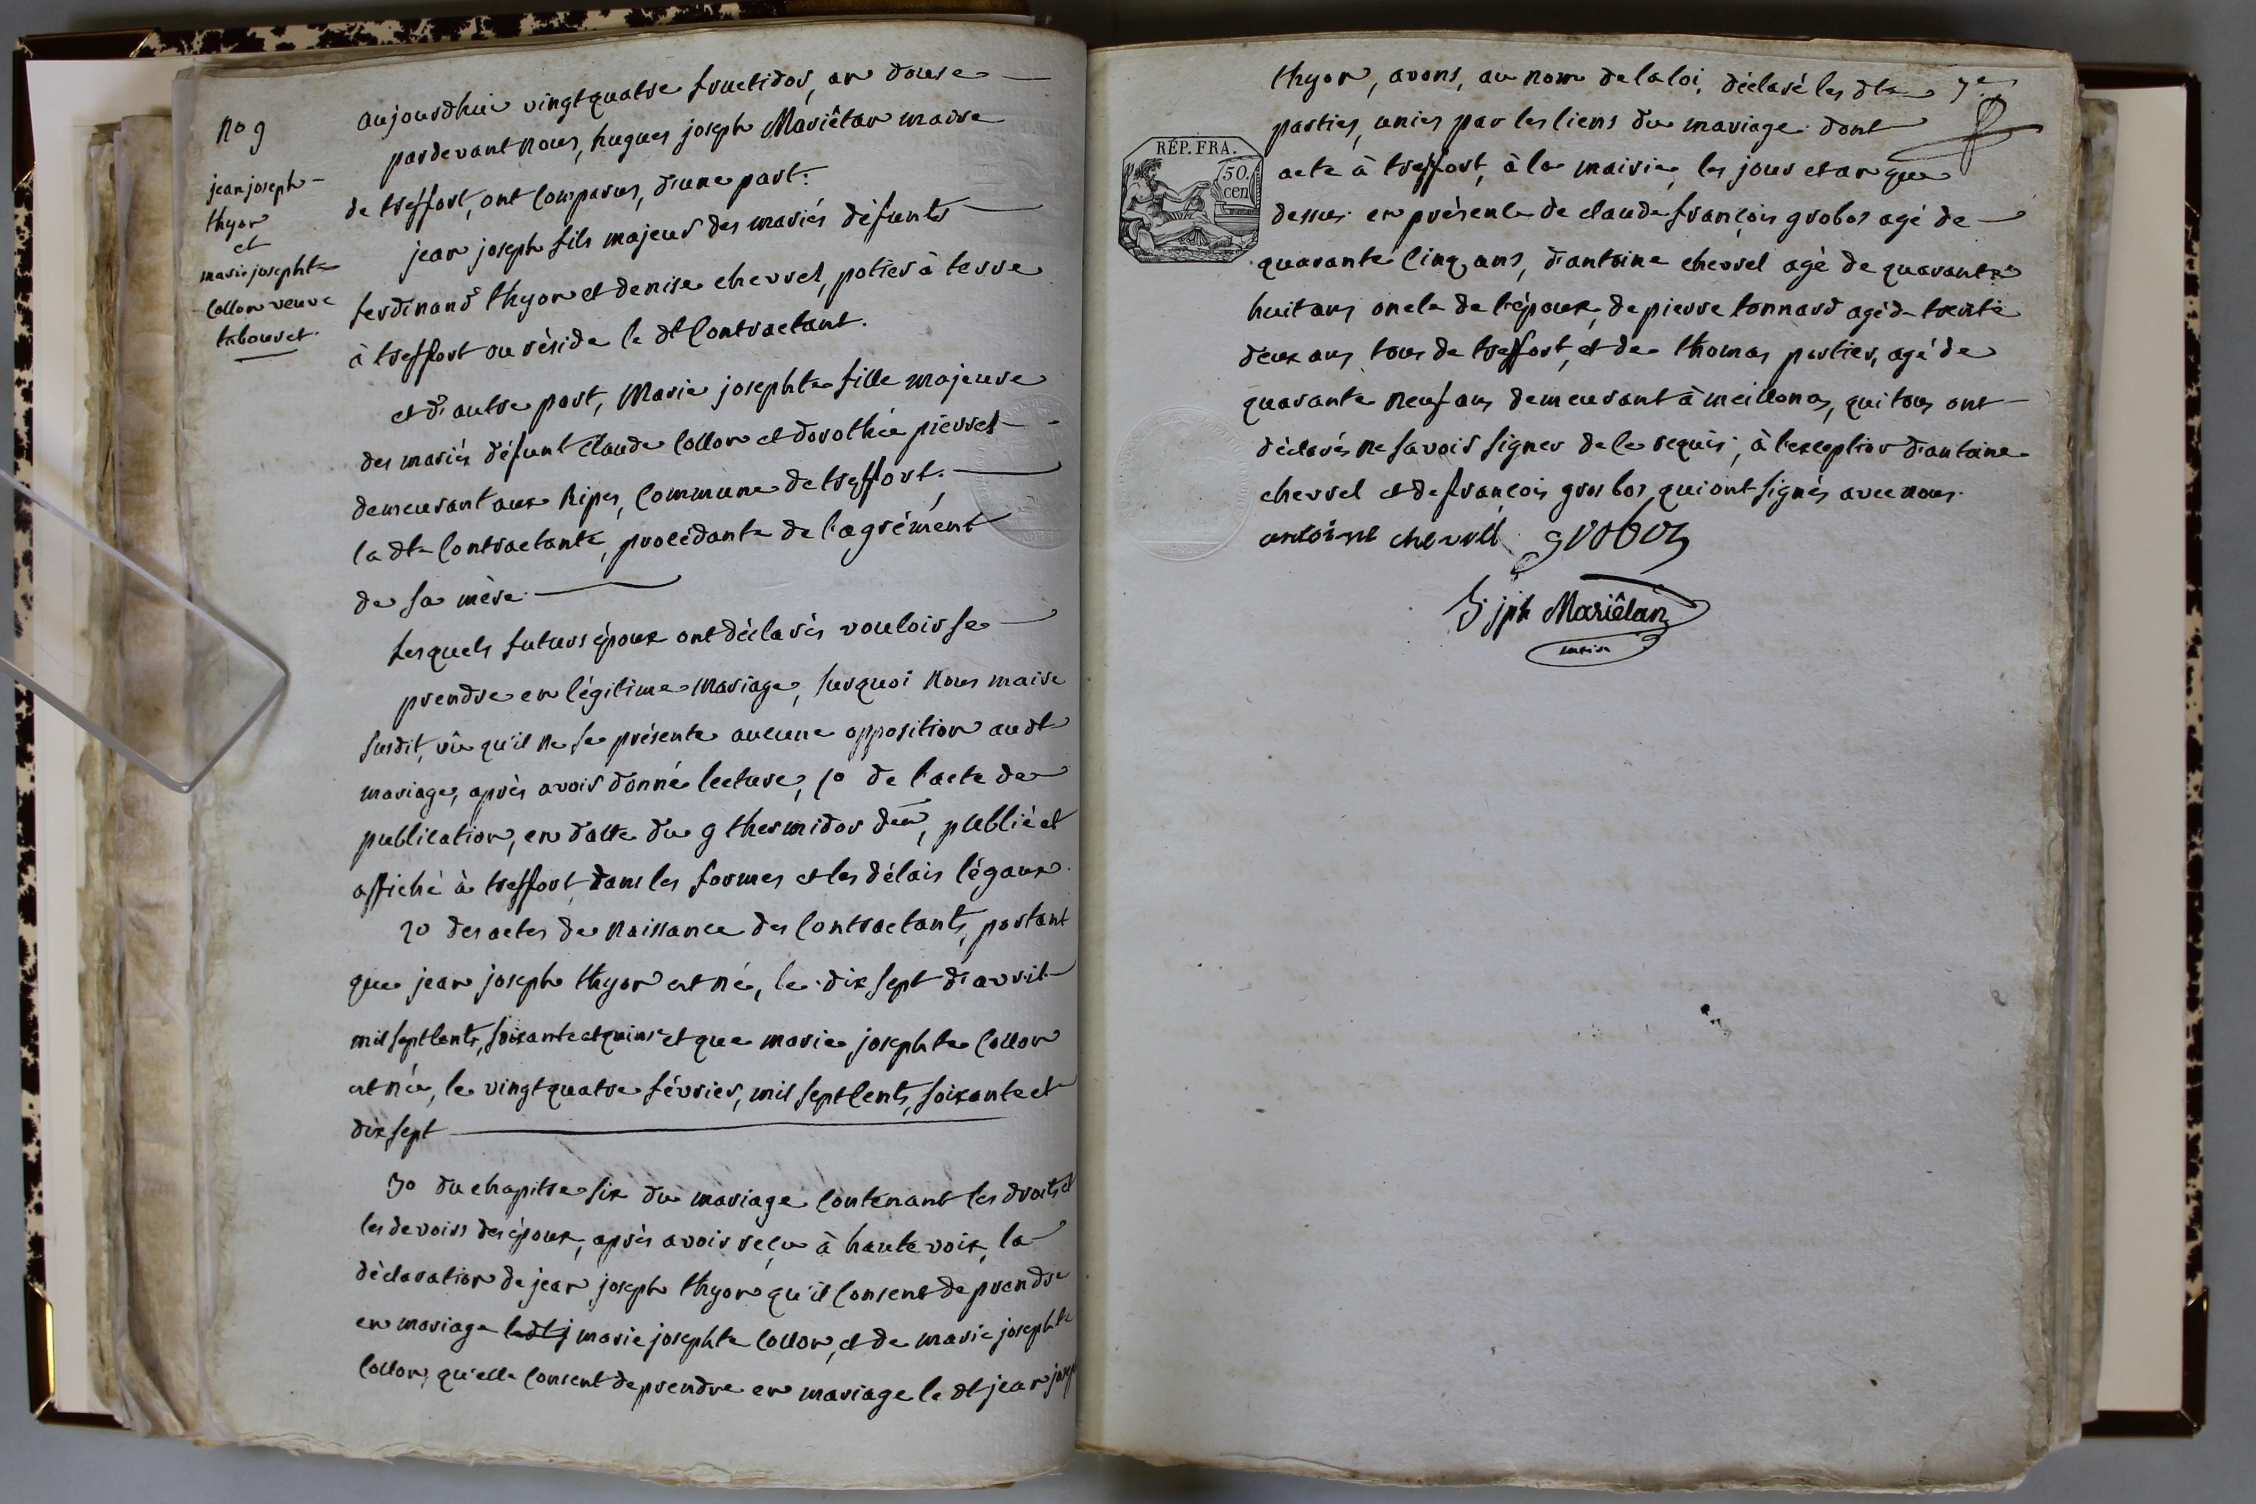 no 9
jean joseph
thyon
et
marie josephte
collon veuve
tabouret.
aujourdhui vingtquatre fructidor, an douse
pardevant nous, hugues joseph Mariêtan maire
de treffort, ont comparus, d'une part:
jean joseph fils majeur des mariés défunts
ferdinand thyon et denise chevrel, potier à terre
à treffort ou réside le dt contractant.
et d'autre part, Marie josephte fille majeure
des mariés défunt Claude collon et dorothée pierrel
demeurant aux Ripes, commune de treffort.
la dte contractante, procédante de l'agrément
de sa mère.
Lesquels futurs époux ont déclarés vouloir se
prendre en légitime mariage, surquoi nous maire
susdit, vû qu'il ne se présente aucune opposition audt
mariage, après avoir donné lecture, 1o de l'acte de
publication, en datte du 9 thermidor der, publié et
affiché à treffort dans les formes et les délais légaux.
2o des actes de naissance des contractants, portant
que jean joseph thyon est né, le dix sept d'avril
mil sept cents, soixante et quinse et que marie josephte collon
est née, le vingtquatre février, mil sept cents, soixante et
dix sept
3o du chapitre six du mariage contenant les droits et
les devoirs des époux, après avoir reçu à haute voix, la
déclaration de jean joseph thyon qu'il consent de prendre
en mariage ladt j marie josephte collon, et de marie josephte
collon, qu'elle consent de prendre en mariage le dt jean josep
7e
thyon, avons, au nom de la loi, déclaré les dtes
parties, unies par les liens du mariage dont
acte à treffort, à la mairie, les jour et an que
dessus en présence de claude françois grobos agé de
quarante cinq ans, d'antoine chevrel agé de quarante
huit ans oncle de l'époux, de pierre tonnard agé de trente
deux ans tous de treffort, et de thomas pertier, agé de
quarante neuf ans demeurant à meillonas, qui tous ont
déclarés ne savoir signer de ce requis; à l'exception d'antoine
chevrel et de françois grosbos, qui ont signés avec nous.
antoine chevrel grobos
h jph Mariêtan
maire
RÉP. FRA.
50.
cen